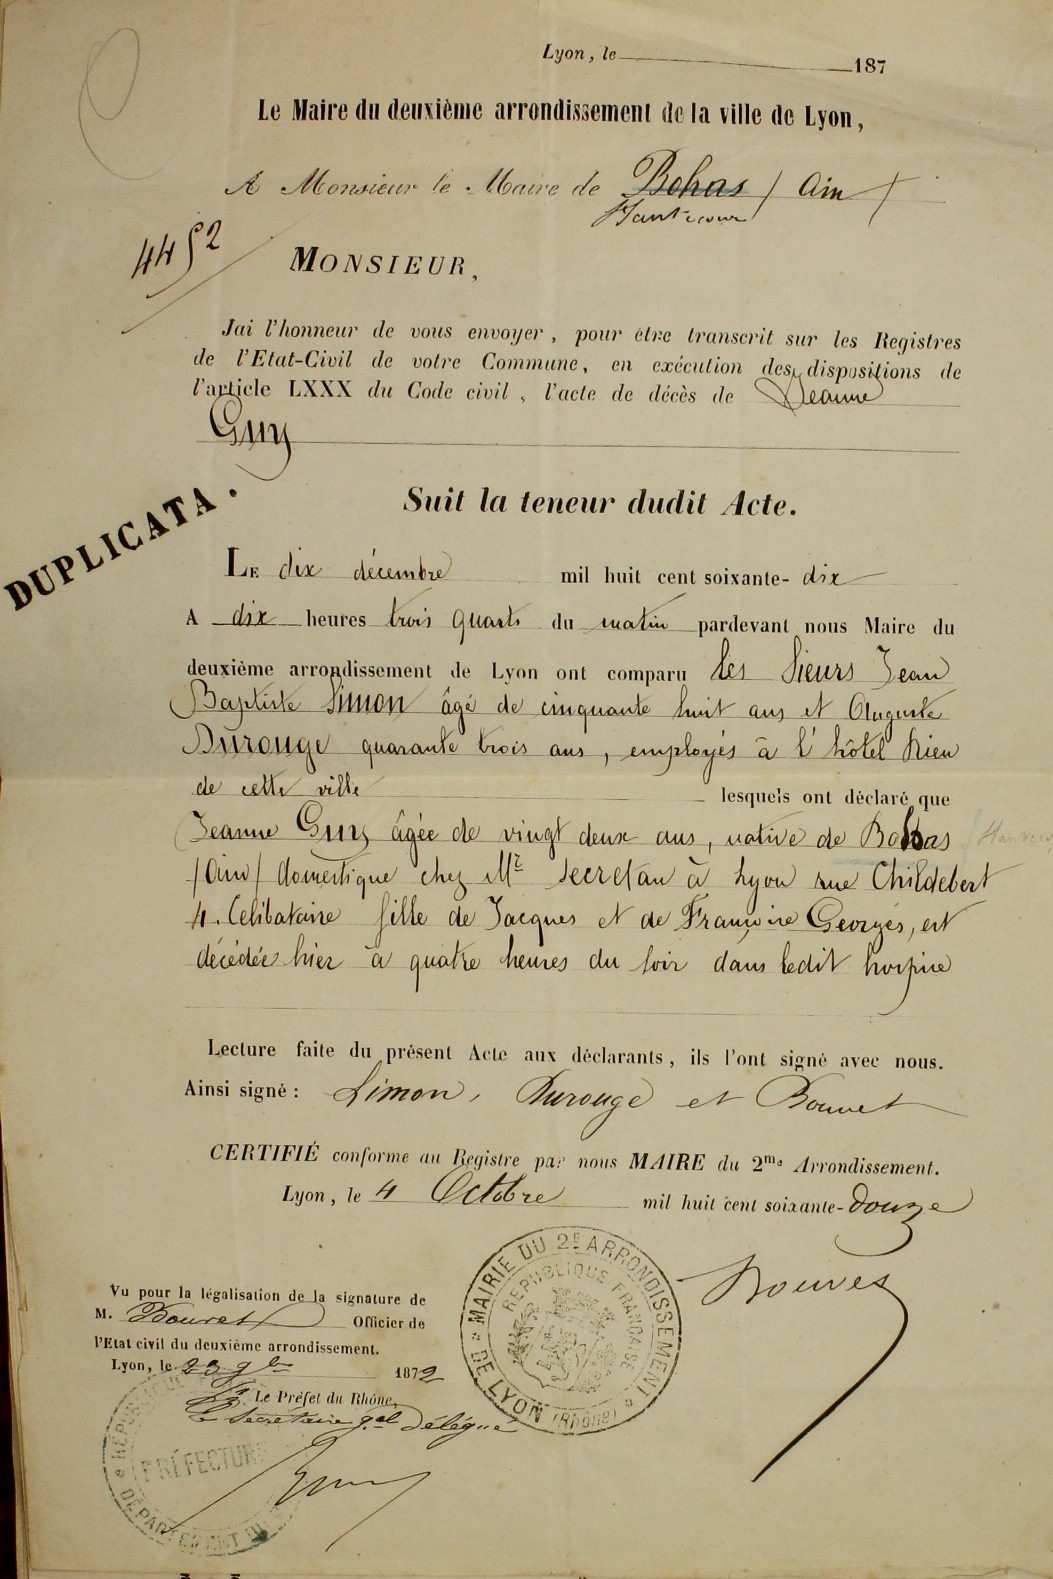 Lyon, le 187
Le Maire du deuxième arrondissement de la ville de Lyon,
A Monsieur le Maire de Bohas / Ain /
Hautecour
4452
MONSIEUR,
Jai l'honneur de vous envoyer, pour être transcrit sur les Registres
de l'Etat-Civil de votre Commune, en exécution des dispositions de
l'article LXXX du Code civil, l'acte de décès de Jeanne
Guy
DUPLICATA.
Suit la teneur dudit Acte.
LE dix décembre mil huit cent soixante-dix
A dix heures trois quarts du matin pardevant nous Maire du
deuxième arrondissement de Lyon ont comparu les sieurs Jean
Baptiste Simon âgé de cinquante huit ans et Auguste
Durouge quarante trois ans, employés à l'hôtel Dieu
de cette ville lesquels ont déclaré que
Jeanne Guy âgée de vingt deux ans, native de Bohas
/Ain/ domestique chez Mr Secretan à Lyon rue Childebert
4. Celibataire fille de Jacques et de Françoise Georges, est
décédée hier à quatre heures du soir dans ledit hospice
Lecture faite du présent Acte aux déclarants, ils l'ont signé avec nous.
Ainsi signé : Simon, Durouge et Bouvet
CERTIFIÉ conforme au Registre par nous MAIRE du 2me Arrondissement.
Lyon, le 4 Octobre mil huit cent soixante-douze
Bouvet
MAIRIE DU 2E ARRONDISSEMENT
DE LYON (RHÔNE)
REPUBLIQUE FRANÇAISE
Vu pour la légalisation de la signature de
M. Bouvet Officier de
l'Etat civil du deuxième arrondissement.
Lyon, le 23 9bre 1872
Le Préfet du Rhône,
Le Secrétaire gal Délégué
PRÉFECTURE